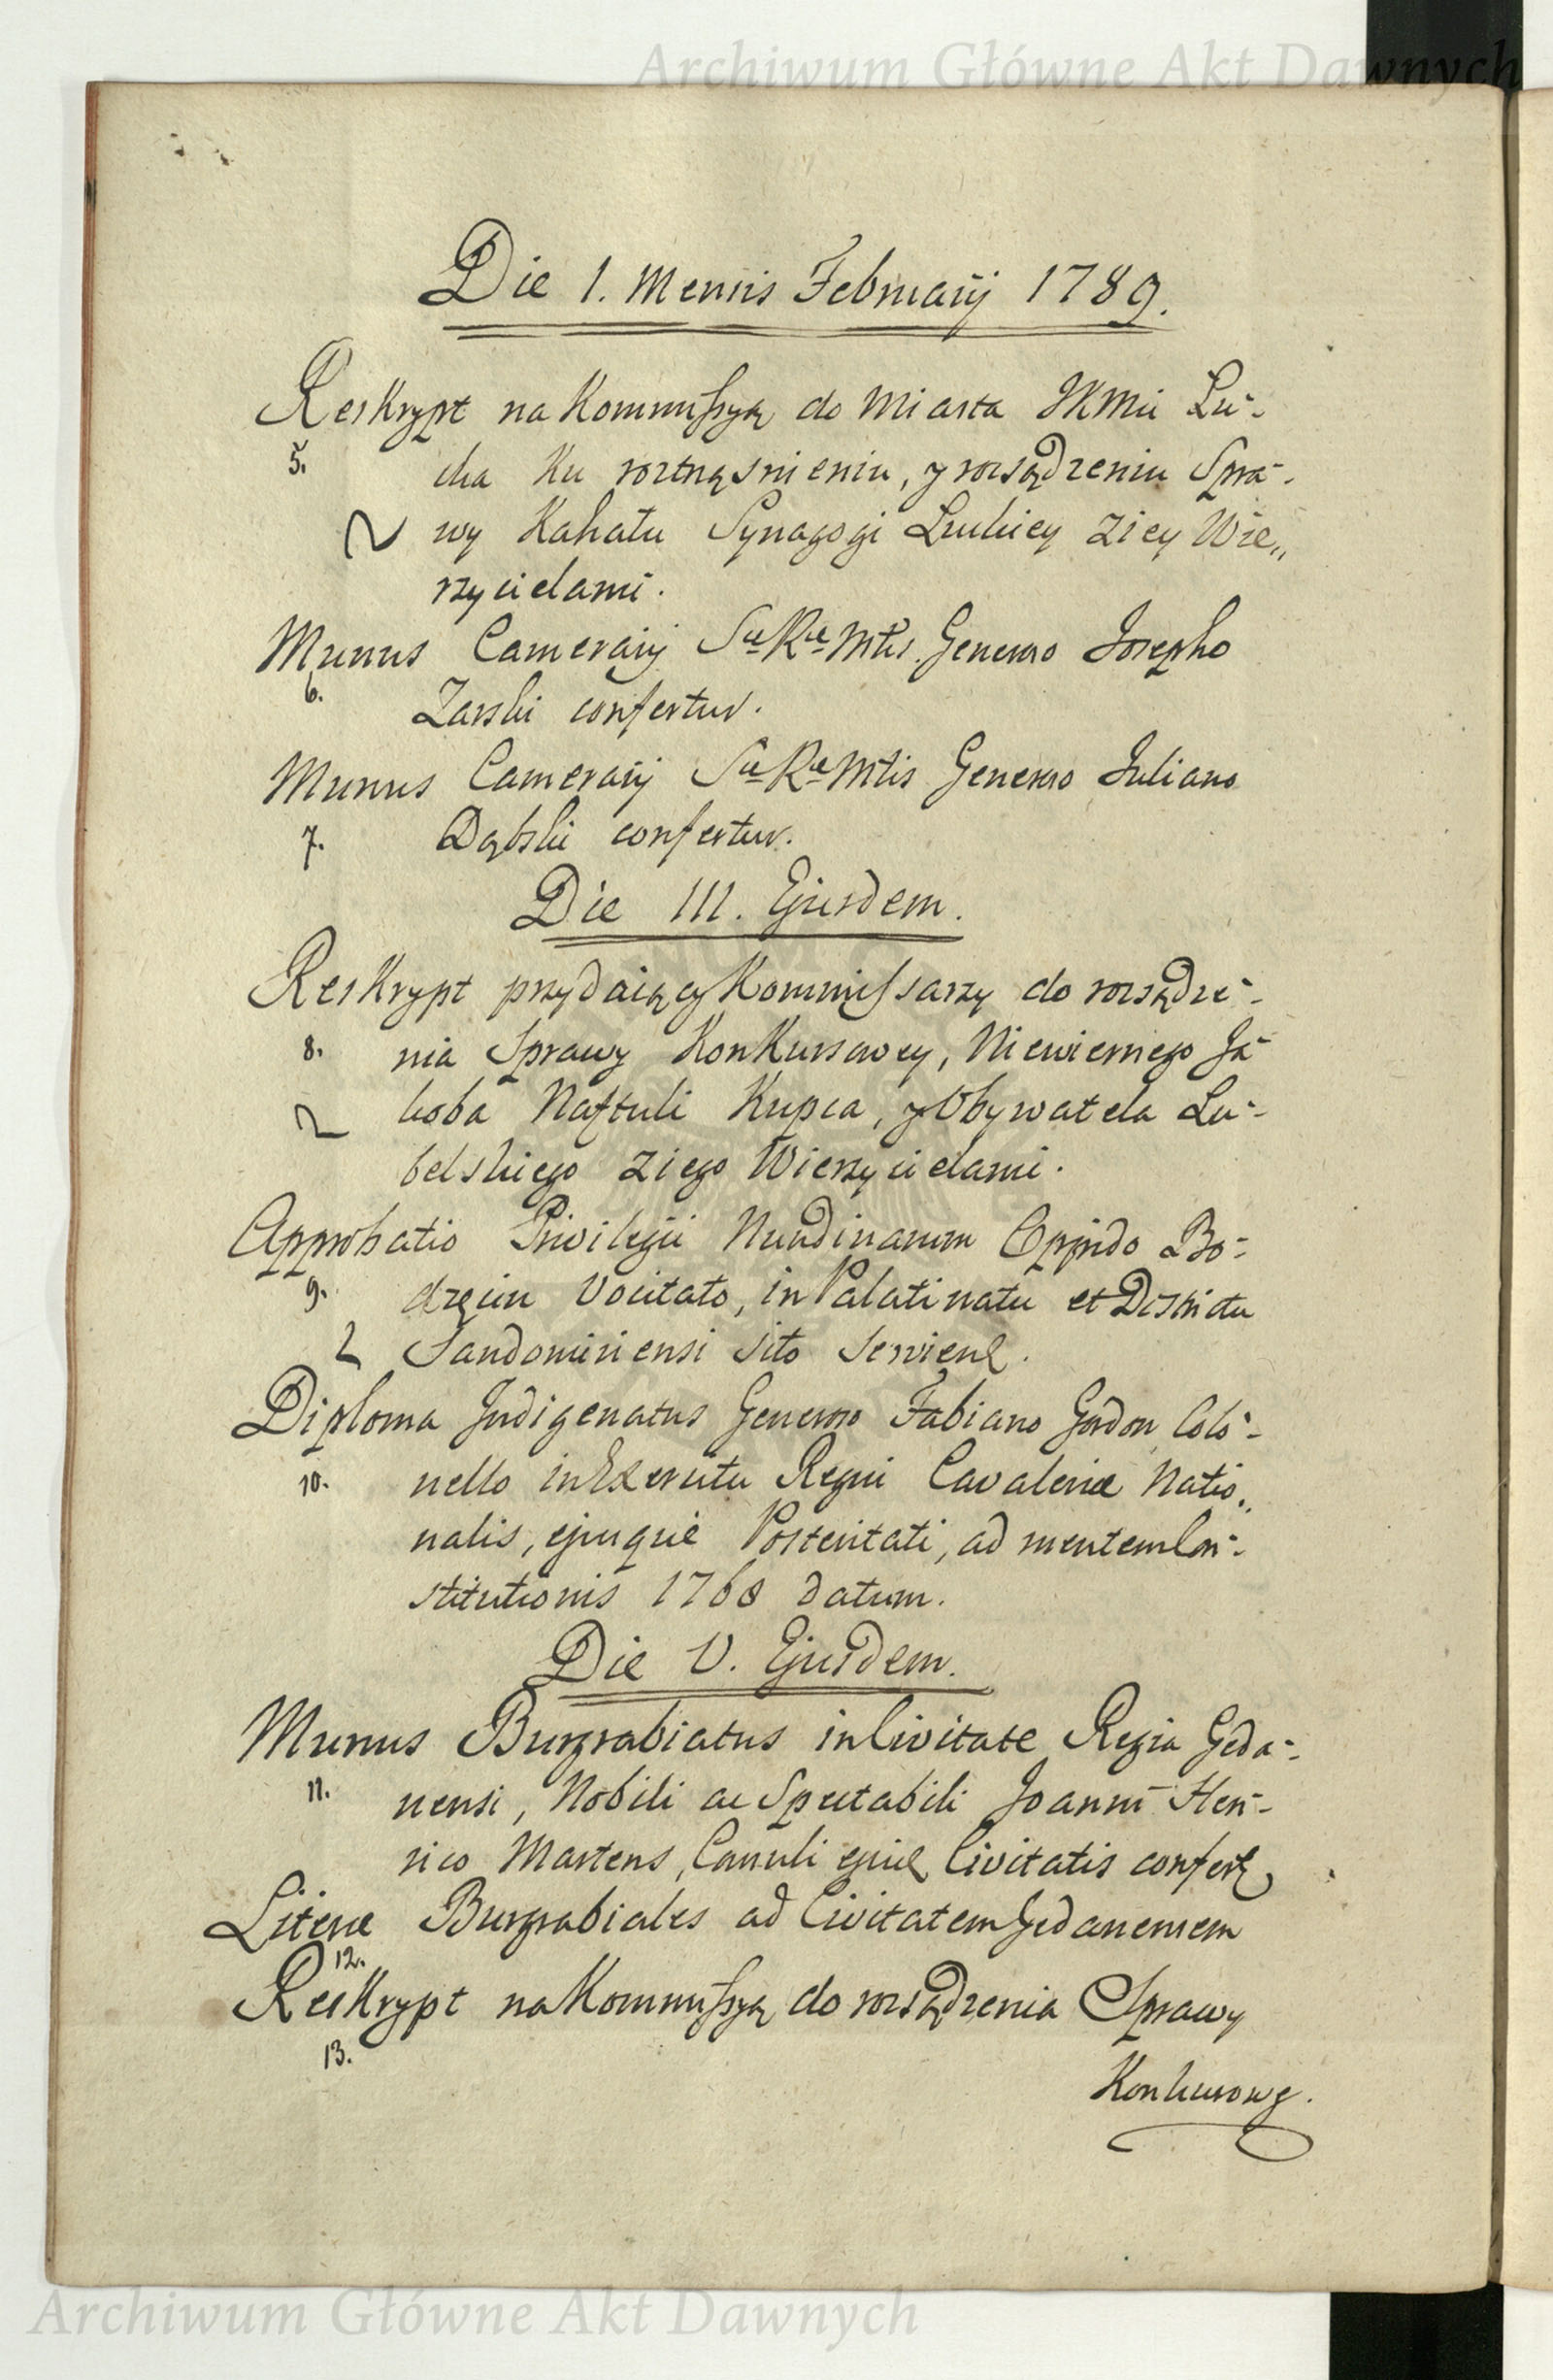 Archiwum Główne Akt Dawnych
Die 1. Mensis Februarij 1789.
Reskrypt na Kommissyą do Miasta JKMci Łu-
5. cka Ku roztrząśnieniu, y rozsądzeniu Spra-
wy Kahału Synagogi Łuckiey z iey Wie„
rzycielami.
Munus Camerarij Sæ Ræ Mtis Generoso Josepho
6. Zarski confertur.
Munus Camerarij Sæ Ræ Mtis Generoso Juliano
7. Dąbski confertur.
Die III. Ejusdem.
Reskrypt przydaiący Kommissarzy do rozsądze-
8. nia Sprawy Konkursowey, Niewiernego Ja-
koba Naftuli Kupca, y Obywatela Lu-
belskiego z iego Wierzycielami.
Approbatio Privilegii Nundinarum Oppido Bo-
9. dzęcin Vocitato, in Palatinatu et Districtu
Sandomiriensi sito serviens.
Diploma Indigenatus Generoso Fabiano Gordon Colo-
10. nello in Exercitu Regni Cavaleriæ Natio„
nalis, ejusque Posteritati, ad mentem Con-
stitutionis 1768 datum.
Die V. Ejusdem.
Munus Burgrabiatus in Civitate Regia Geda-
11. nensi, Nobili ac Spectabili Joanni Hen-
rico Martens, Consuli ejus Civitatis confert
Literæ Burgrabiales ad Civitatem Gedanensem
12.
Reskrypt na Kommissyą do rozsądzenia Sprawy
13.
Konkursowey.
Archiwum Główne Akt Dawnych